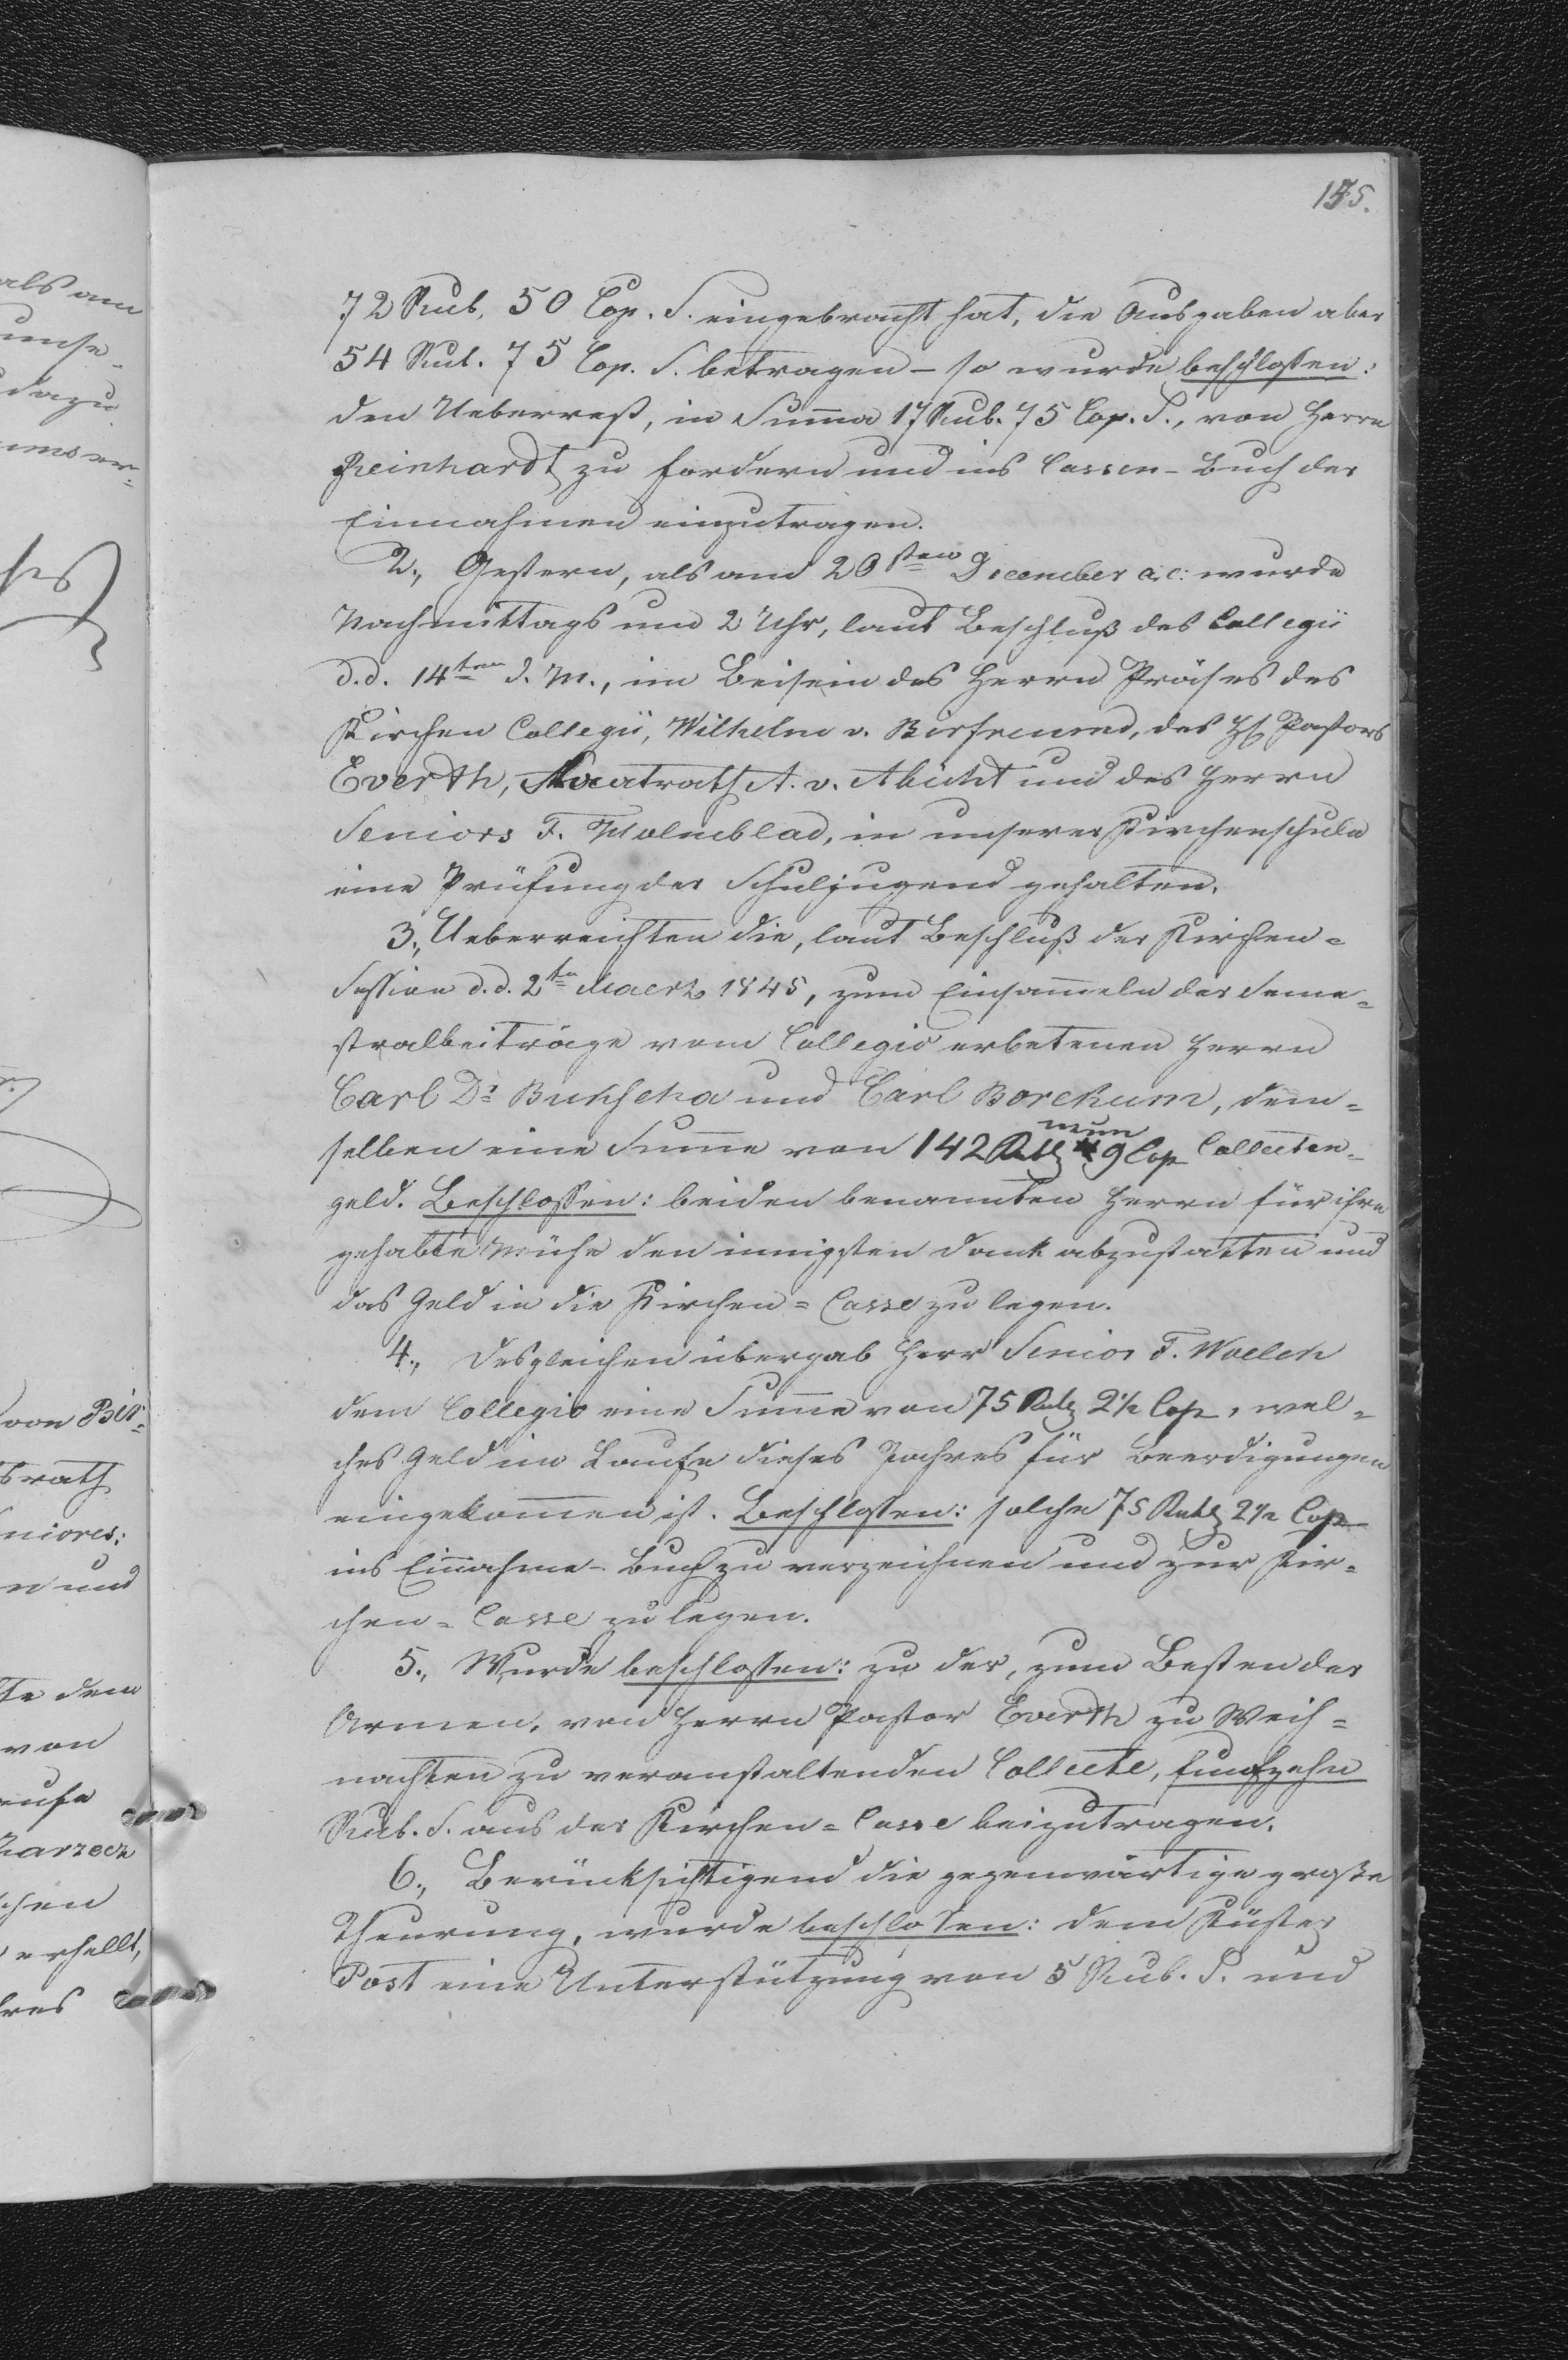 155.
72 Rub. 50 Cop. S. eingebracht hat, die Ausgaben aber
54 Rub. 75 Cop. S. betragen – so wurde beschlossen:
den Ueberrest, in Suma 17 Rub. 75 Cop. S., von Herrn
Reinhardt zu fordern und ins Cassen-Buch der
Einnahmen einzutragen.
2., Gestern, als am 20sten December a.c: wurde
Nachmittags um 2 Uhr, laut Beschluß des Collegii
d.d. 14ten d. M., im Beisein des Herrn Präses des
Kirchen Collegii, Wilhelm v. des H. Pastors
Everth, A. v. Abicht und des Herrn
Seniors F. Holmblad, in unserer Kirchenschule
eine Prüfung der Schuljugend gehalten.
3., Ueberreichten die, laut Beschluß der Kirchen=
Session d.d. 2ten Maerz 1845, zum Einsameln der Seme=
stralbeiträge vom Collegio erbetenen Herrn
Carl Dr und Carl Borchum, dem=
selben eine Sume von 142 Rbl 9 Cop Collecten=
neun
geld. Beschlossen: beiden benannten Herrn für ihre
gehabte Mühe den innigsten Dank abzustatten und
das Geld in die Kirchen=Casse zu legen.
4., Desgleichen übergab Herr Senior F. Woelck
dem Collegio eine Sume von 75 Rub 2½ Cop, wel=
ches Geld im Laufe dieses Jahres für Beerdigungen
eingekomen ist. Beschlossen: solche 75 Rub 2½ Cop
ins Einahme-Buch zu verzeichnen und zur Kir=
chen=Casse zu legen.
5., Wurde beschlossen: zu der, zum Besten der
Armen, von Herrn Pastor Everth zu Weih=
nachten zu veranstaltenden Collecte, funfzehn
Rub. S. aus der Kirchen=Casse beizutragen.
6., Berücksichtigend die gegenwärtige große
Theurung, wurde beschlossen: dem Küster
Post eine Unterstützung von 5 Rub. S. und